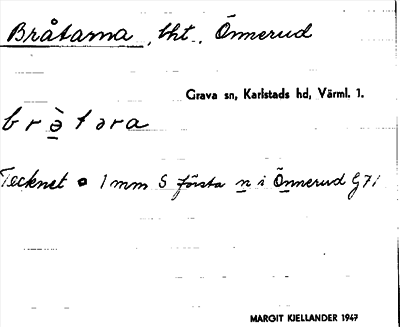 Bråtarna, tht., Önnerud
Grava sn, Karlstads hd, Värml. 1.
brə̀təra
Tecknet o 1 mm S första n i Önnerud G71
MARGIT KJELLANDER 1947